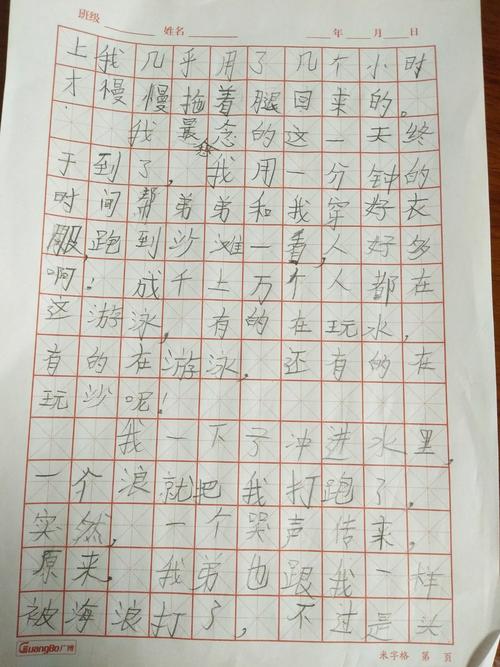 班级 姓名 年 月 日
上我几乎用了几个小时
才慢慢拖着腿回来的。
我最念的这一天终
于到了，我用一分钟的
时间帮弟弟和我穿好衣
服，跑到沙滩一看，人好多
啊！成千上万个人都在
这游泳，有的在玩水，
有的在游泳，还有的在
玩沙呢！
我一下子冲进水里，
一个浪就把我打跑了，
突然，一个哭声传来，
原来，我弟也跟我一样
被海浪打了，不过是头
GuangBo广博 米字格 第 页